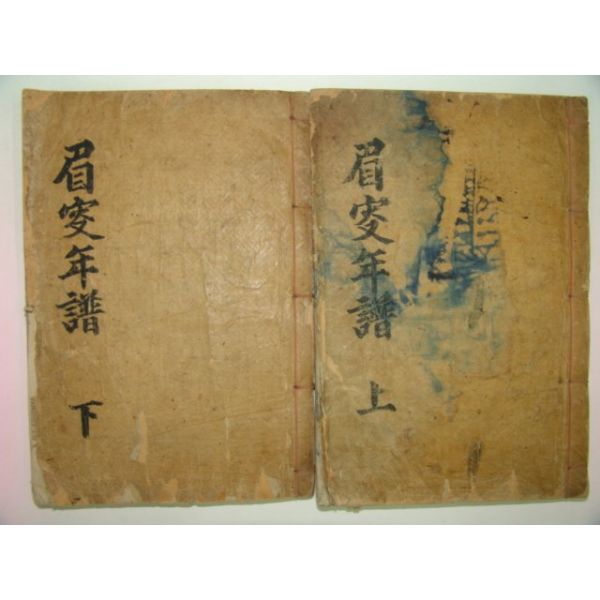 眉叜年譜 上
眉叜年譜 下